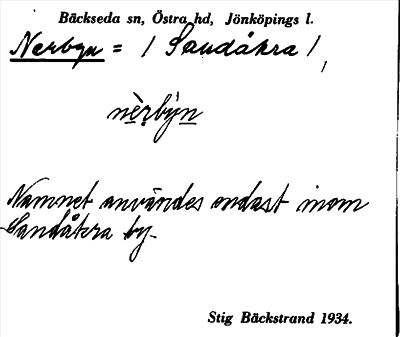 Bäckseda sn, Östra hd, Jönköpings l.
Nerbyn = / Sandåkra /,
nè̱ṛbýn̲
Namnet användes endast inom
Sandåkra by.
Stig Bäckstrand 1934.